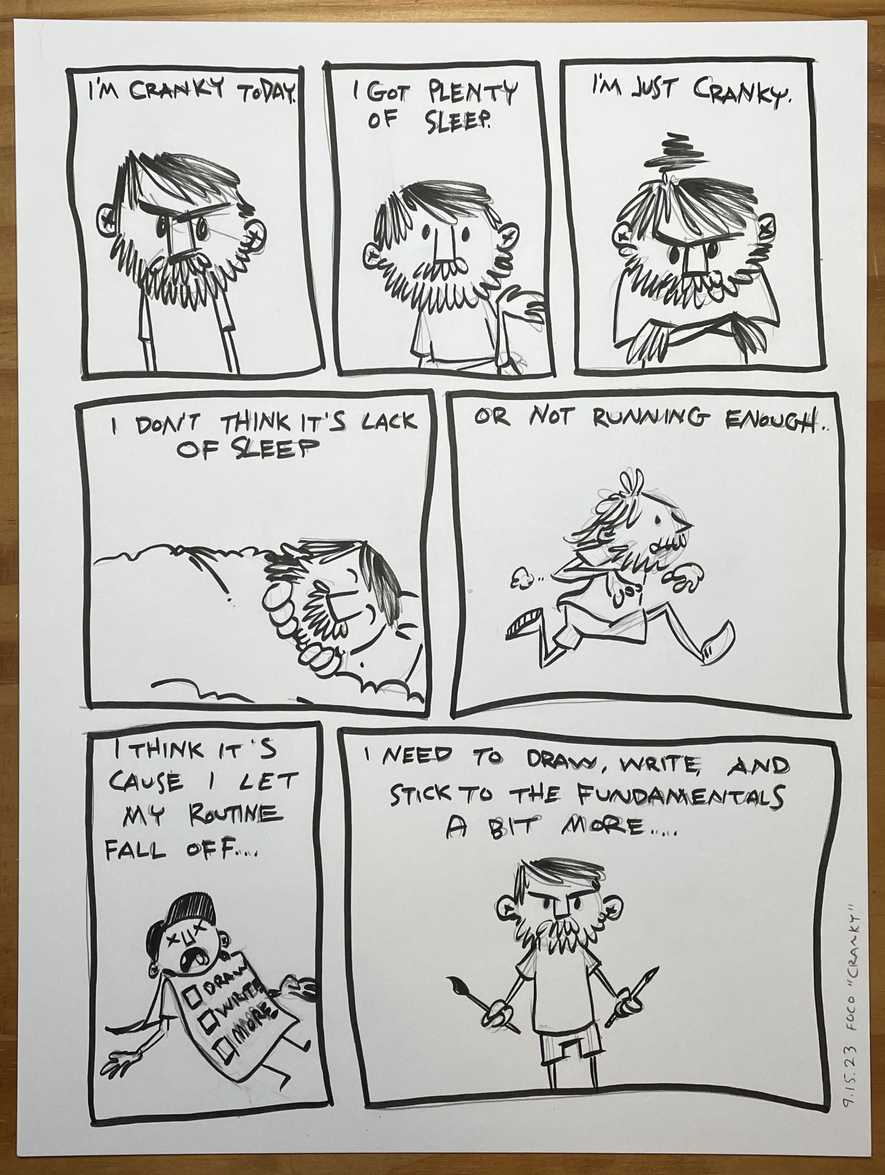 I'M CRANKY TODAY.
I GOT PLENTY
OF SLEEP.
I'M JUST CRANKY.
I DON'T THINK IT'S LACK
OF SLEEP
OR NOT RUNNING ENOUGH..
I THINK IT'S
CAUSE I LET
MY ROUTINE
FALL OFF...
DRAW
WRITE
MORE
I NEED TO DRAW, WRITE, AND
STICK TO THE FUNDAMENTALS
A BIT MORE....
9.15.23 FOCO "CRANKY"